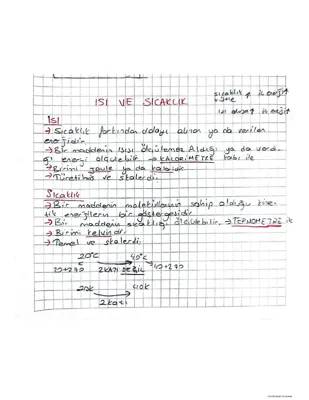 sıcaklık ↑ ık enerji ↑
ISI VE SICAKLIK
Isı
→ Sıcaklık farkından dolayı alınan ya da verilen
enerjidir.
→ Bir maddenin ISISI ölçülemez Aldığı ya da verdi-
ği enerji ölçülebilir. → KALORİMETRE kabı ile
→ Birimi joule ya da kaloridir.
→ Türetilmiş ve skalerdir.
Sıcaklık
→ Bir maddenin moleküllerinin sahip olduğu kine-
tik enerjilerin bir göstergesidir.
→ Bir maddenin sıcaklığı ölçülebilir. → TERMOMETRE ile
→ Birimi kelvindir.
→ Temel ve skalerdir.
20°C 40°C
20+270 2 KATI DEĞİL 40+270
20K 40K
2 katı